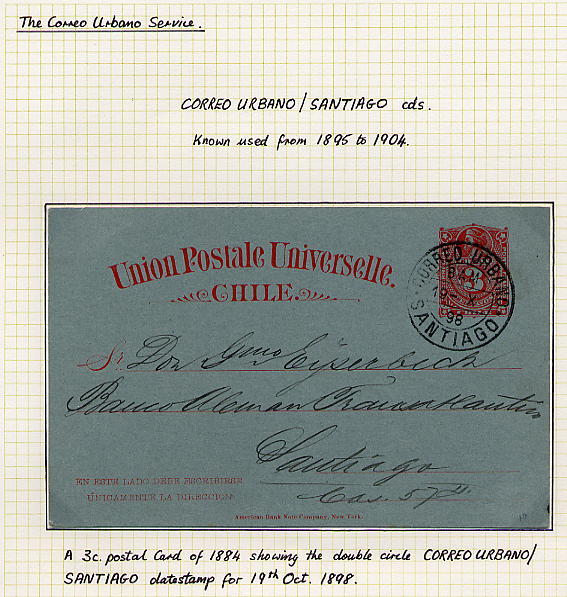 The Correo Urbano Service.
CORREO URBANO/SANTIAGO cds.
Known used from 1895 to 1904.
Union Postale Universelle.
CHILE.
CORREO URBANO
19
98
SANTIAGO
Sr. Don Gmo Eyserbeck
Banco Aleman Transatlantico
Santiago
Cas.
EN ESTE LADO DEBE ESCRIBIRSE
ÚNICAMENTE LA DIRECCION
American Bank Note Company, New York.
A 3c. postal Card of 1884 showing the double circle CORREO URBANO/
SANTIAGO datestamp for 19th Oct. 1898.